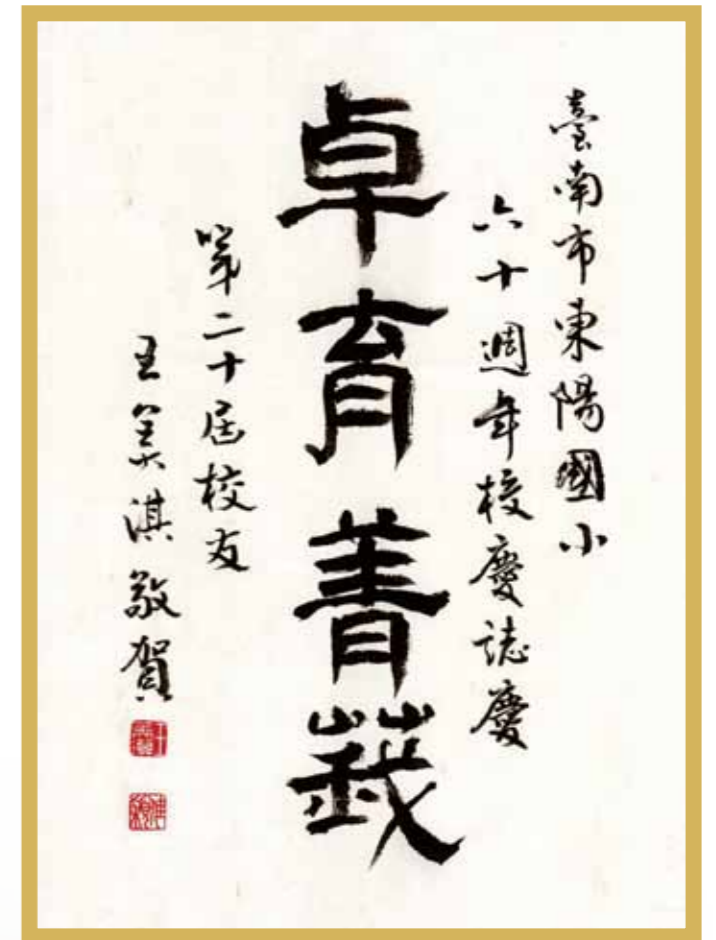 臺南市東陽國小
六十週年校慶誌慶
卓育菁莪
第二十屆校友
王美淇敬賀